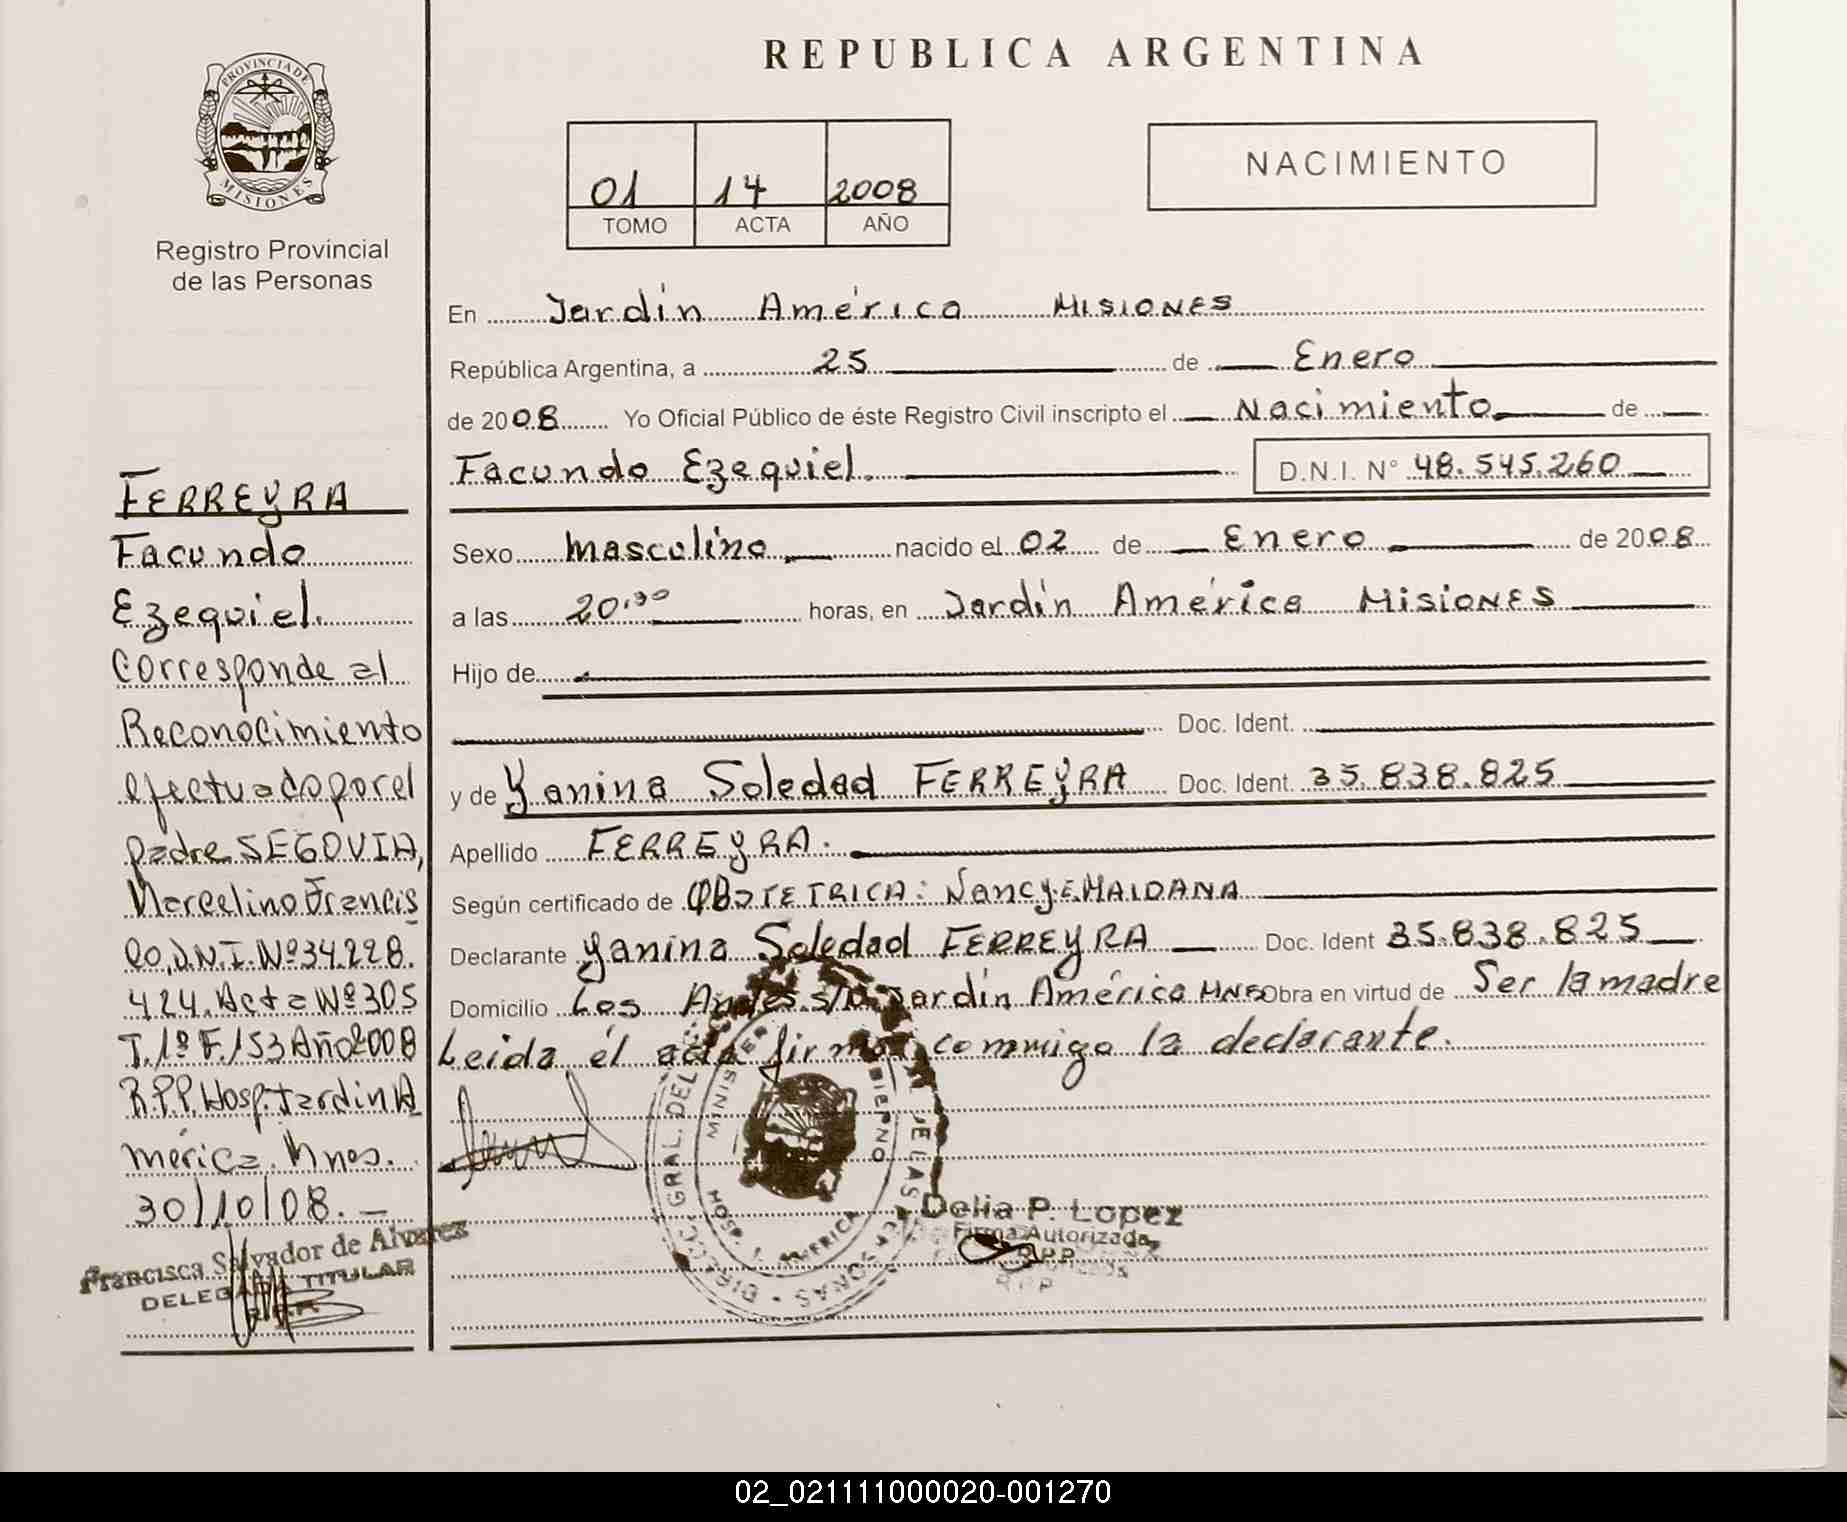 REPUBLICA ARGENTINA
PROVINCIA DE
MISIONES
Registro Provincial
de las Personas
01 14 2008
TOMO ACTA AÑO
NACIMIENTO
En Jardín América MISIONES
República Argentina, a 25 de Enero
de 2008 Yo Oficial Público de éste Registro Civil inscripto el Nacimiento de
Facundo Ezequiel. D.N.I. N° 48.545.260
Sexo masculino nacido el 02 de Enero de 2008
a las 20,30 horas, en Jardín América MISIONES
Hijo de
Doc. Ident.
y de Yanina Soledad FERREYRA Doc. Ident. 35.838.825
Apellido FERREYRA.
Según certificado de OBSTETRICA: Nancy E. MAIDANA
Declarante Yanina Soledad FERREYRA Doc. Ident 35.838.825
Domicilio Los Andes s/n Jardín América MNES Obra en virtud de Ser la madre
Leida el acta firma commigo la declarante.
FERREYRA
Facundo
Ezequiel.
Corresponde al
Reconocimiento
efectuado por el
padre SEGOVIA,
Marcelino Francis
co, D.N.I. Nº 34.228.
424. Acta Nº 305
T. 1º F. 153 Año 2008
R.P.P. Hosp. Jardín A
mérica. Mnes.
30/10/08.-
Francisca Salvador de Alvarez
DELEGADA TITULAR
R.P.P.
DIRECC. GRAL. DEL
MINISTER
BIERNO
HOSP. J. AMERICA
Delia P. Lopez
Firma Autorizada
R.P.P.
02_021111000020-001270